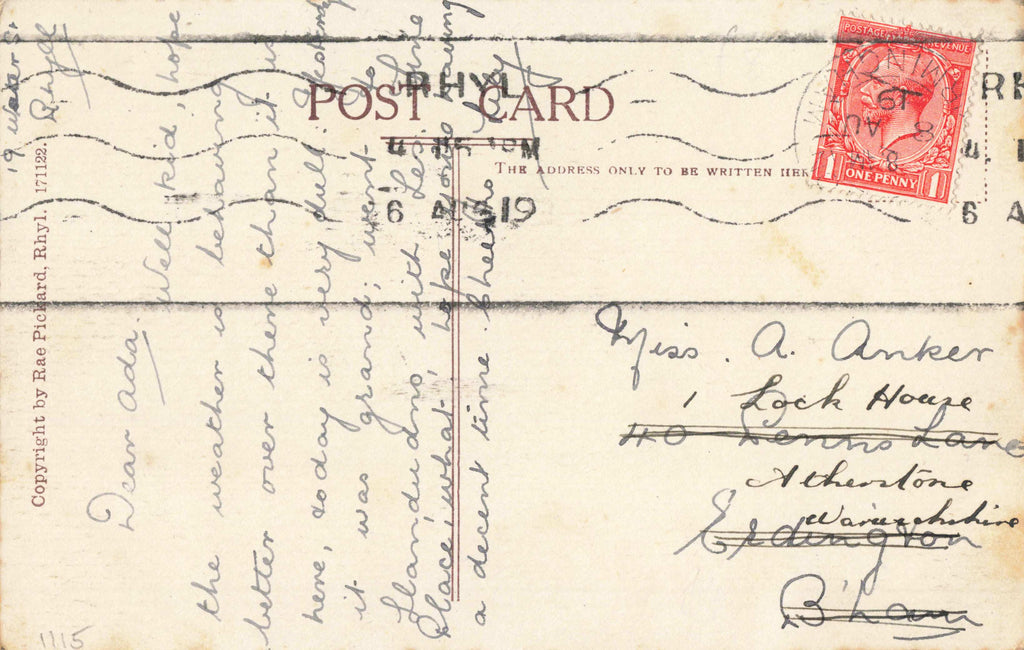 POST CARD
THE ADDRESS ONLY TO BE WRITTEN HER
Copyright by Rae Pickard, Rhyl. 17122.
19 Water St
Rhyl
Dear Ada.
Well kid, hope
the weather is behaving
better over there than it is
here, today is very dull.
it was grand; went to
Llandudno with Les, fine
Place, what, hope you're having
a decent time. Cheerio
POSTAGE REVENUE
1 ONE PENNY 1
RHYL
4 15 PM
6 AUG 19
RH
4
6 A
Miss. A. Anker
1 Lock House
40 Denns Lane
Atherstone
Warwickshire
Erdington
B'ham
1115